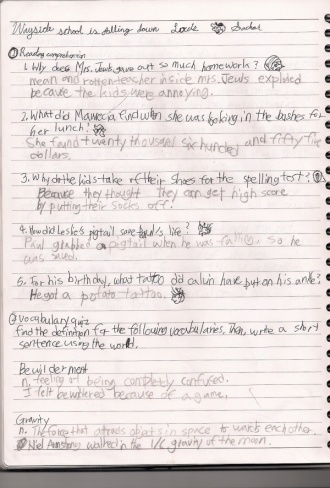 Wayside school is falling down
① Reading comprehension
1. Why does Mrs. Jewls gave out so much homework?
mean and rotten teacher inside mrs. Jewls exploded
because the kids were annoying.
2. What did Maurecia find when she was looking in the bushes for
her lunch?
She found twenty thousand six hundred and fifty five
dollars.
3. Why do the kids take off their shoes for the spelling test?
Because they thought They can get high score
by putting their socks off.
4. How did Leslie's pigtail save Paul's life?
Paul grabbed a pigtail when he was falling, so he
was saved.
5. For his birthday, what tattoo did calvin have put on his ankle?
He got a potato tattoo.
② Vocabulary quiz
find the definition for the following vocabularies, Then, write a short
sentence using the word.
Bewilderment
n. feeling of being completly confused.
I felt bewildered because of a game.
Gravity
n. The force that attracts objects in space towards each other.
Niel Armstrong walked in the 1/6 gravity of the moon.